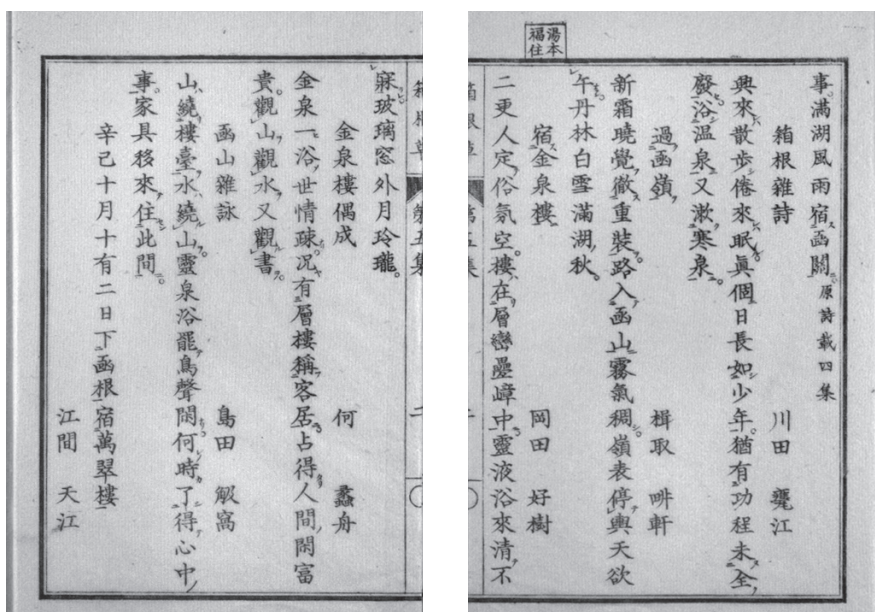 湯本
福住
事滿湖風雨宿函關。原詩載四集
箱根雜詩　川田　甕江
興來散步倦來眠眞個日長如少年。猶有功程未全
廢浴温泉又漱寒泉。
過函嶺　楫取　畊軒
新霜曉覺徹重裝路入函山霧氣稠嶺表停輿天欲
午丹林白雪滿湖秋。
宿金泉樓　岡田　好樹
二更人定俗氛空樓在層巒疊嶂中靈液浴來清不
寐玻璃窓外月玲瓏。
金泉樓偶成　何　蠡舟
金泉一浴世情疎况有層樓稱客居占得人間閑富
貴觀山觀水又觀書。
函山雜詠　島田　窩
山繞樓臺水繞山靈泉浴罷鳥聲閒何時了得心中
事家具移來住此間。
辛己十月十有二日下凾根宿萬翠樓
江間　天江